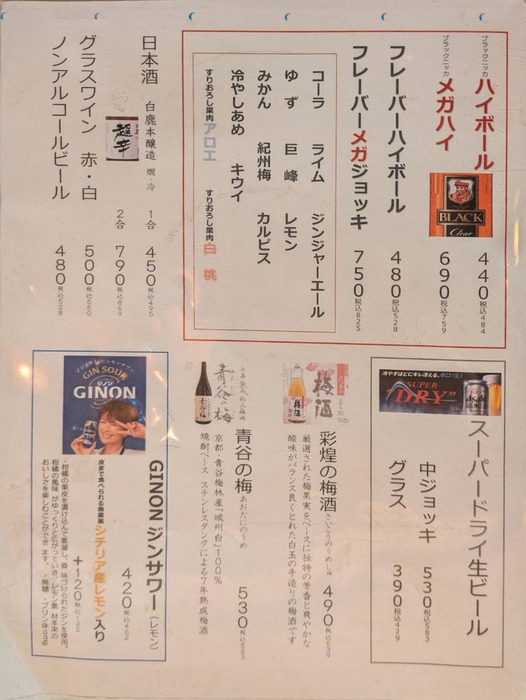 ブラックニッカ
ハイボール
440 税込484
ブラックニッカ
メガハイ
690 税込759
BLACK
Clear
フレーバーハイボール
480 税込528
フレーバーメガジョッキ
750 税込825
コーラ ライム ジンジャーエール
ゆず 巨峰 レモン
みかん 紀州梅 カルピス
冷やしあめ キウイ
すりおろし果肉アロエ すりおろし果肉白桃
日本酒 白鹿本醸造 燗・冷
超辛
1合 450 税込495
2合 790 税込869
グラスワイン 赤・白 500 税込550
ノンアルコールビール 480 税込528
冷やすほどにキレ冴える。辛口〈生〉
SUPER
"DRY"
Asahi
スーパードライ生ビール
中ジョッキ 530 税込583
グラス 390 税込429
梅酒
彩煌の梅酒 さいこうのうめしゅ 490 税込539
厳選された梅果実をベースに独特の芳香と爽やかな
酸味がバランス良くとれた白玉の手造りの梅酒です
青谷の梅
青谷の梅 あおだにのうめ 530 税込583
京都・青谷梅林産「城州白」100%
焼酎ベース ステンレスタンクによる7年熟成梅酒
GIN SOUR
ジノン
GINON
GINON ジンサワー (レモン)
420 税込462
皮まで食べられる無農薬
シチリア産レモン入り
+120 税込132
・柑橘の果皮を漬け込んで蒸溜し、香味づけられたジンを使用。